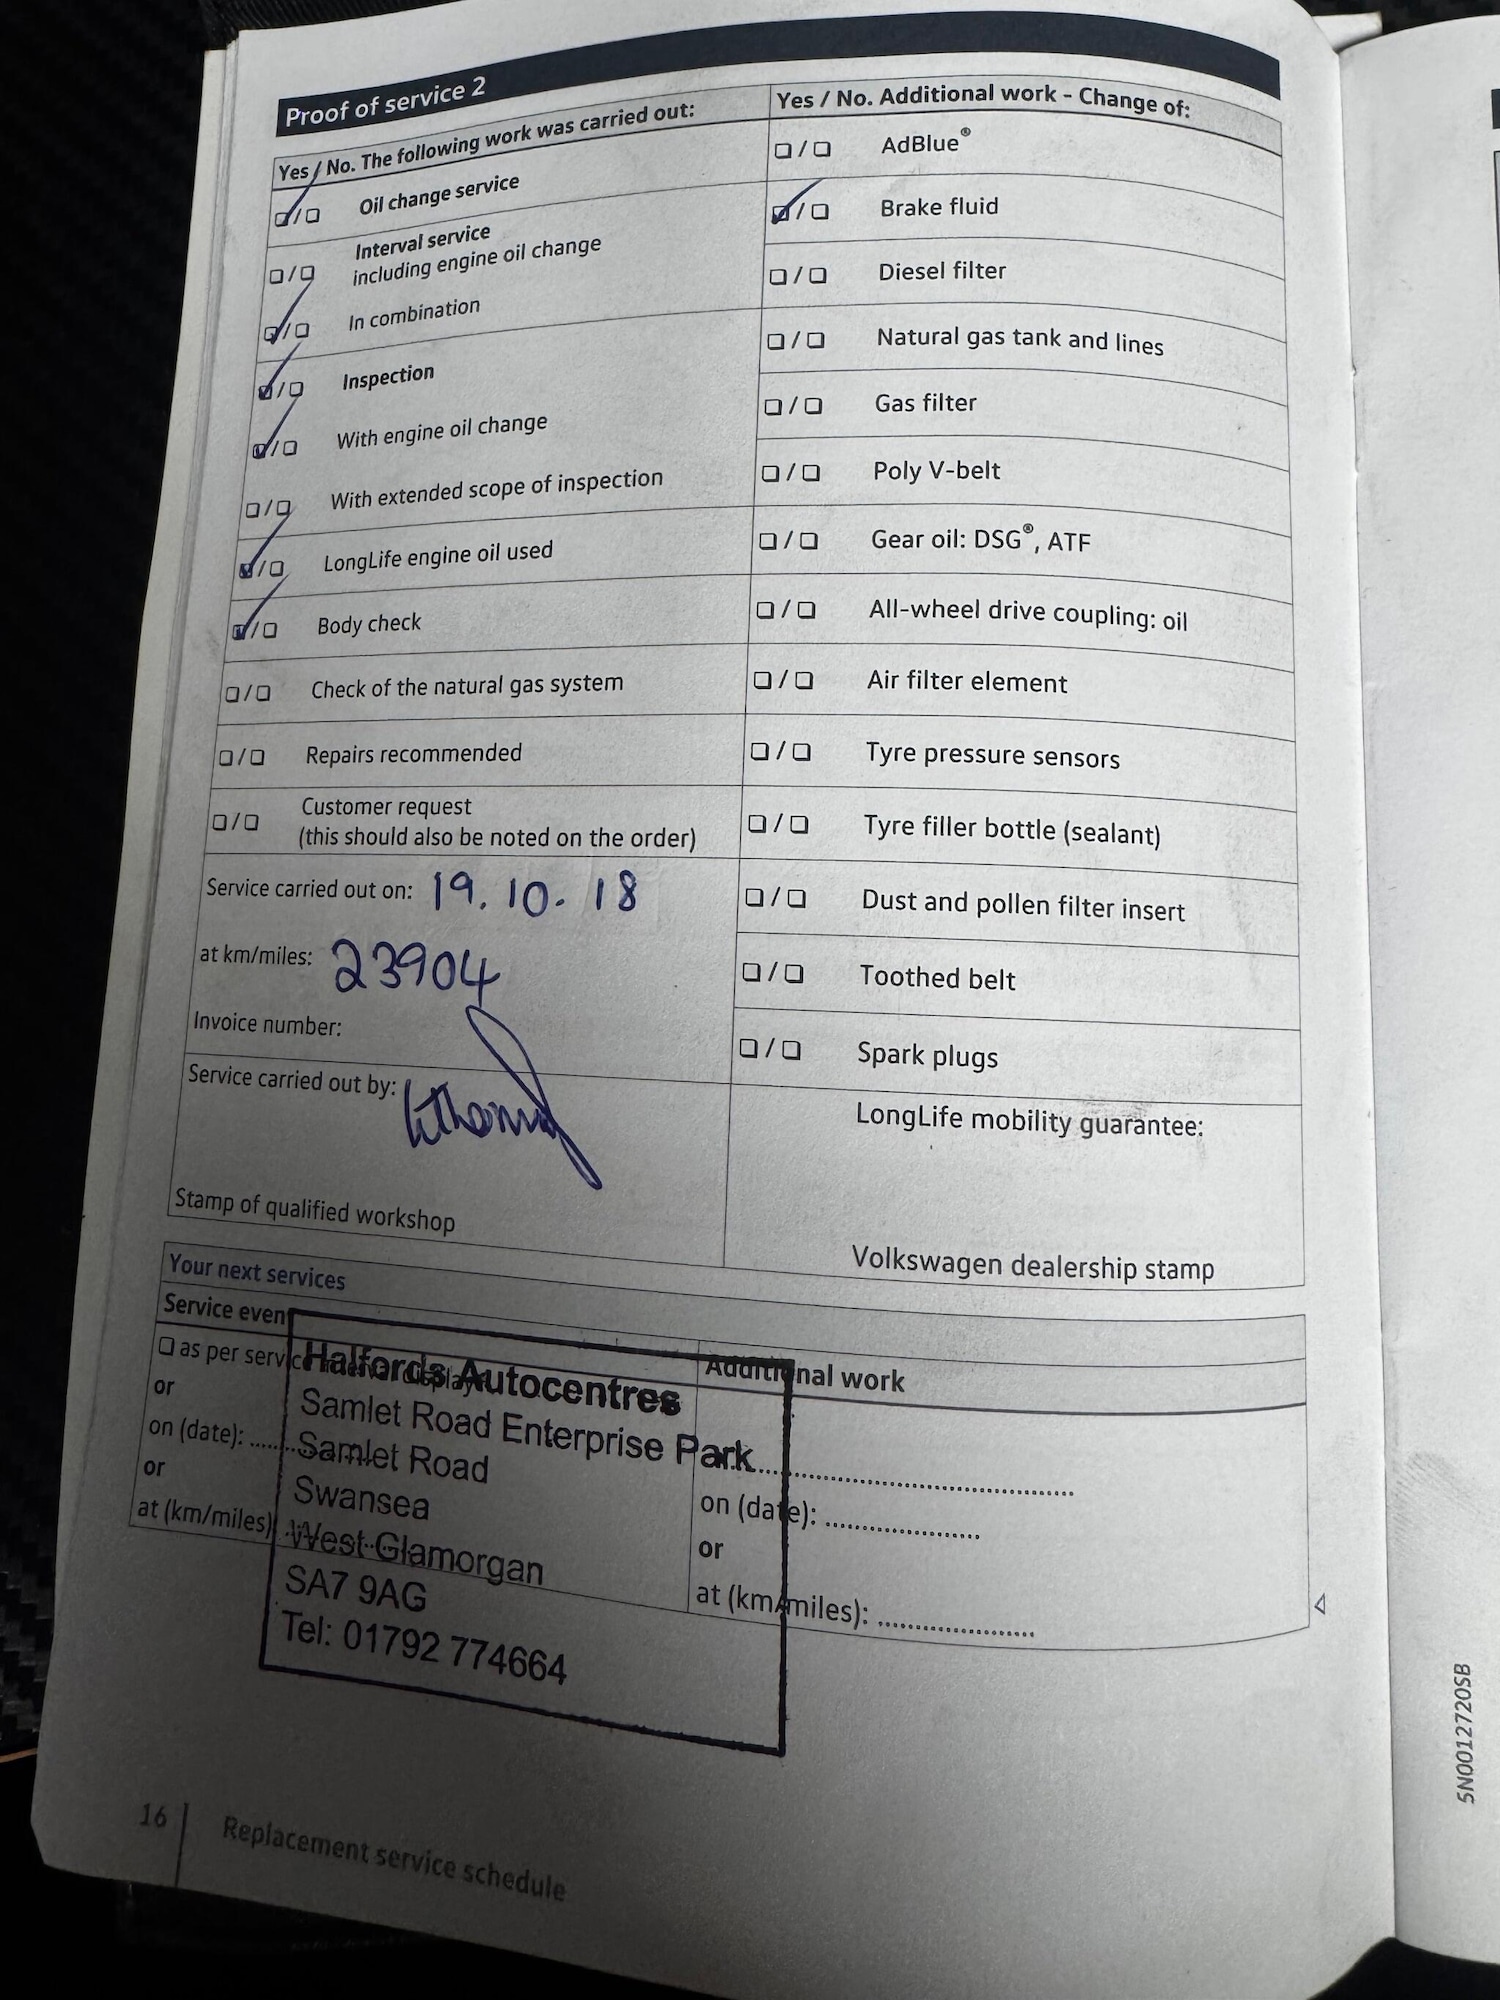 Proof of service 2
Yes / No. The following work was carried out:
❏/❏ Oil change service
❏/❏ Interval service
including engine oil change
❏/❏ In combination
❏/❏ Inspection
❏/❏ With engine oil change
❏/❏ With extended scope of inspection
❏/❏ LongLife engine oil used
❏/❏ Body check
❏/❏ Check of the natural gas system
❏/❏ Repairs recommended
❏/❏ Customer request
(this should also be noted on the order)
Service carried out on: 19.10.18
at km/miles: 23904
Invoice number:
Service carried out by:
Stamp of qualified workshop
Yes / No. Additional work - Change of:
❏/❏ AdBlue®
❏/❏ Brake fluid
❏/❏ Diesel filter
❏/❏ Natural gas tank and lines
❏/❏ Gas filter
❏/❏ Poly V-belt
❏/❏ Gear oil: DSG®, ATF
❏/❏ All-wheel drive coupling: oil
❏/❏ Air filter element
❏/❏ Tyre pressure sensors
❏/❏ Tyre filler bottle (sealant)
❏/❏ Dust and pollen filter insert
❏/❏ Toothed belt
❏/❏ Spark plugs
LongLife mobility guarantee:
Volkswagen dealership stamp
Your next services
Service even
❏ as per service interval display
or
on (date): ........
or
at (km/miles)
Additional work
........................................
on (date): ......................
or
at (km/miles): ......................
Halfords Autocentres
Samlet Road Enterprise Park
Samlet Road
Swansea
West Glamorgan
SA7 9AG
Tel: 01792 774664
16 Replacement service schedule
5N0012720SB